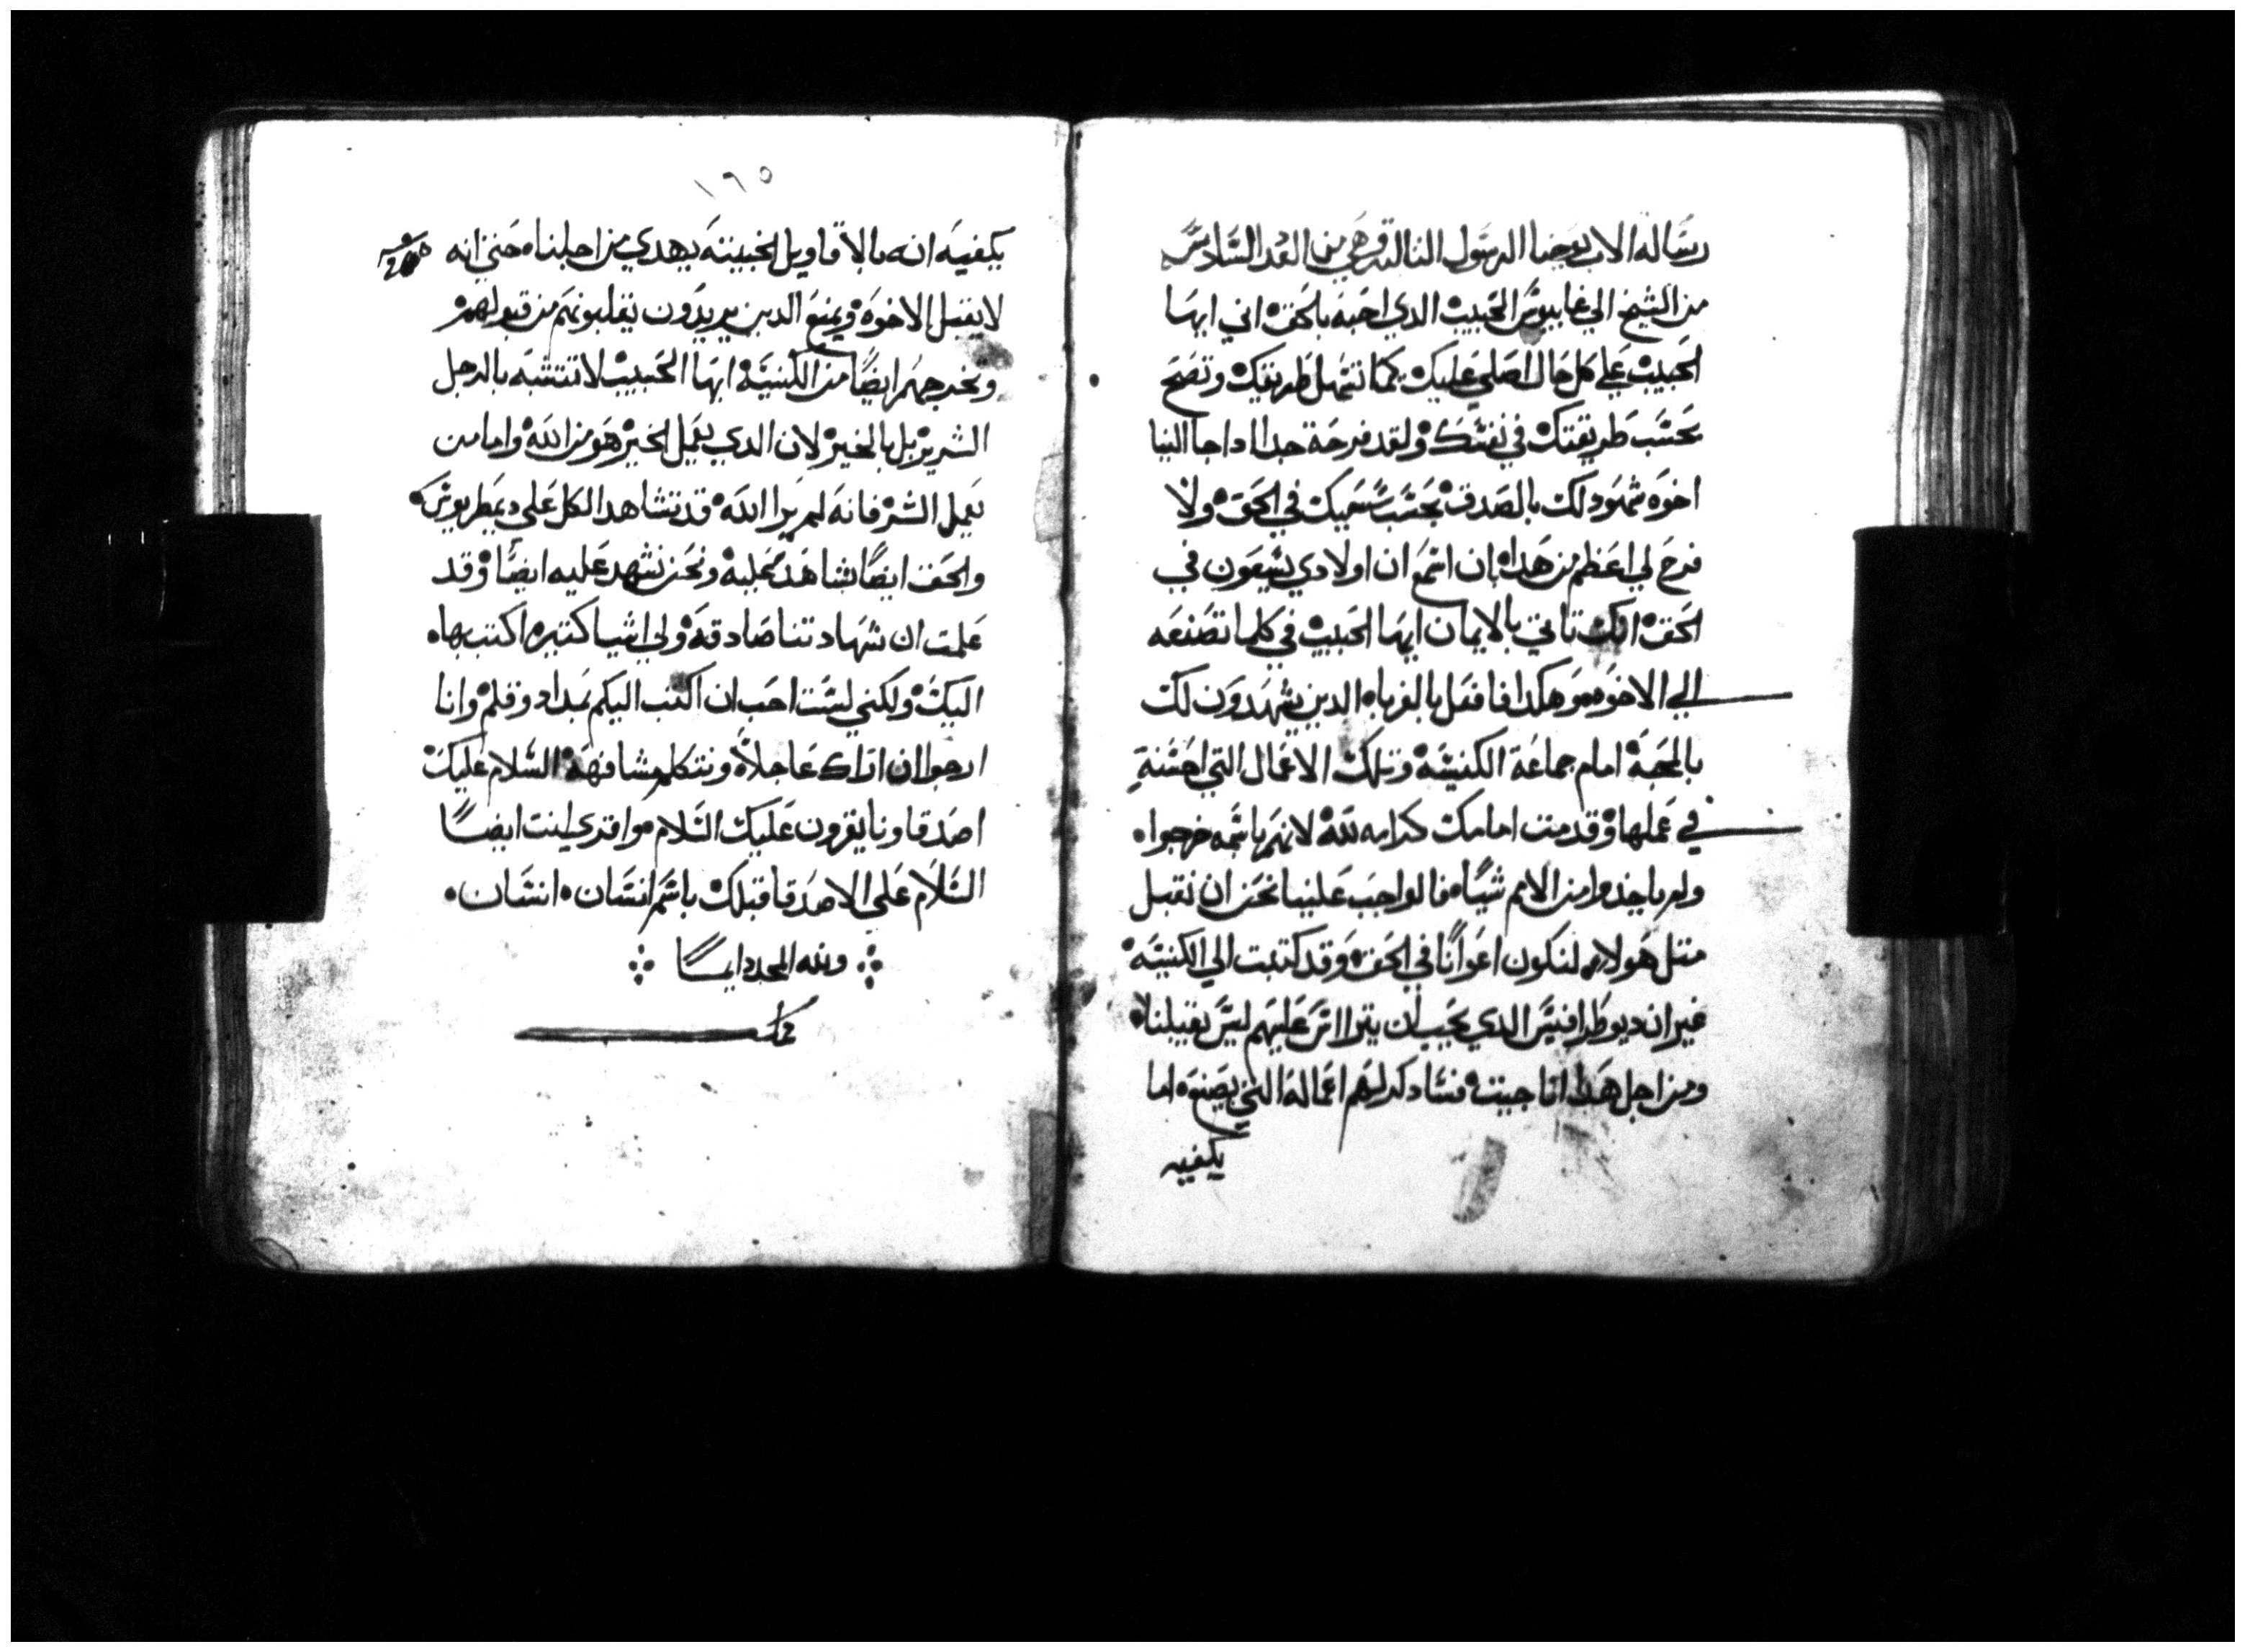 رساله الاب يوحنا الرسول التالته وهي من العدد السادس
من الشيخ الي غاييوس الحبيب الدي احبه بالحق اني ايها
الحبيب علي كل حال اصلي عليك كما تسهل طريقك وتصح
بحسب طريقتك في نفسك ولقد فرحة جدا ادا جا الينا
اخوه شهود لك بالصدق بحسب سعيك في الحق ولا
فرح لي اعظم من هدا بان اسمع ان اولادي يسعون في
الحق انك تاتي بالايمان ايها الحبيب في كلما تصنعه
الي الاخوه وهكدا فافعل بالغربا الدين يشهدون لك
بالمحبة امام جماعة الكنيسه وتلك الاعمال التي احسنة
في عملها وقدمت امامك كرامه لله لانهم باسمه خرجوا
ولم ياخدوا من الامم شيا فالواجب علينا نحن ان نقبل
متل هولا لنكون اعوانا في الحق وقد كتبت الي الكنيسه
غير ان ديوطرافيس الدي يحب ان يتراس عليهم ليس يقبلنا
ومن اجل هدا انا جيت فسادكر لهم اعماله التي يصنعه اما
يكفيه
١٦٥
يكفيه انه بالاقاويل الخبيته يهدي من اجلنا حتي انه
لا يقبل الاخوه ويمنع الدين يريدون يقبلونهم من قبولهم
ونخرجهم ايضا من الكنيسه ايها الحبيب لا تتشبه بالرجل
الشرير بل بالخير لان الدي يعمل الخير هو من الله واما من
يعمل الشر فانه لم يرا الله قد تشاهد الكل علي ديمطريوس
والحق ايضا يشاهد عليه ونحن نشهد عليه ايضا وقد
علمت ان شهادتنا صادقه ولي اشيا كتيره اكتب بها
اليك ولكني لست احب ان اكتب اليكم بمداد وقلم وانا
ارجوا ان اراك عاجلا ونتكلم مشافهة السلام عليك
اصدقاونا يقرون عليك السلام واقري انت ايضا
السلام علي الاصدقا قبلك باسم انسان انسان
ولله المجد دايما